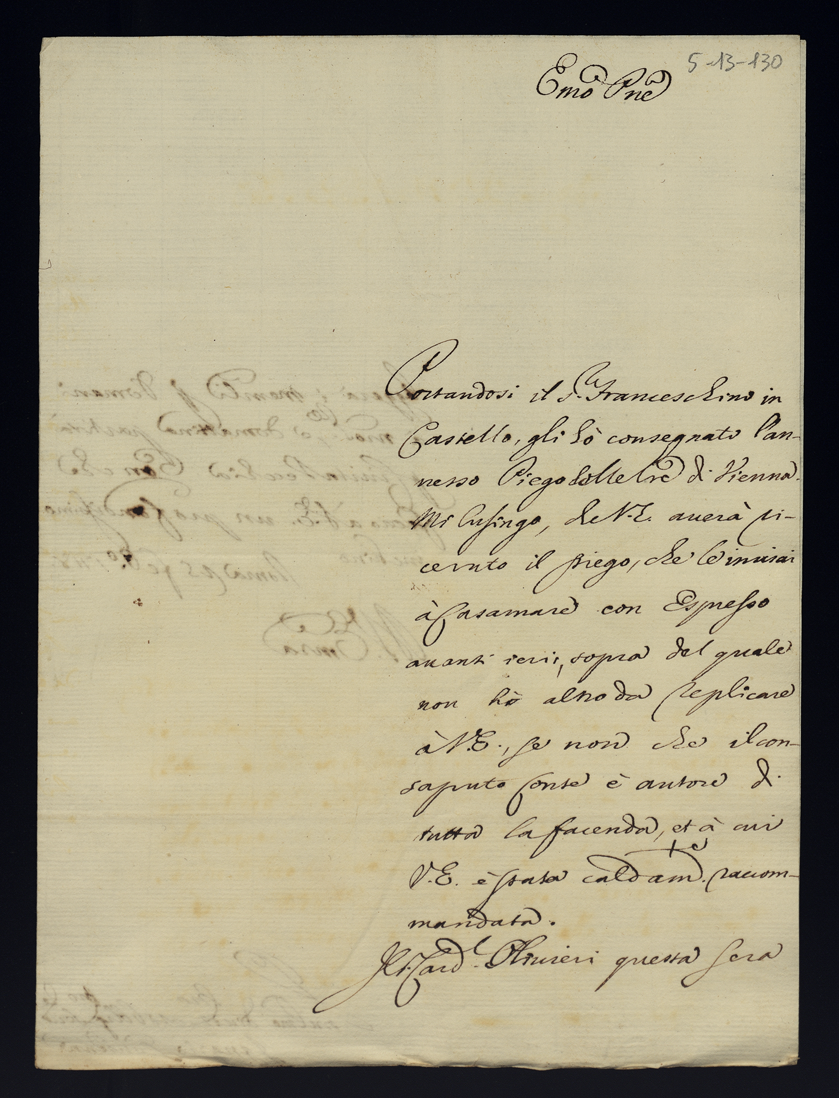 5-13-130
Emo Pne
Portandosi il S.r Franceschino in
Castello, gli hò consegnato l'an-
nesso Piego delle lre di Vienna.
Mi lusingo, che V.E. averà ri-
cevuto il piego, che le inviai
à Casamare con Espresso
avanti ieri, sopra del quale
non hò altro da replicare
à V.E., se non che il con-
saputo Conte è autore di
tutta la facenda, et à cui
V.E. è stata caldam.te raccom-
mandata.
Il S. Card.l Olivieri questa sera